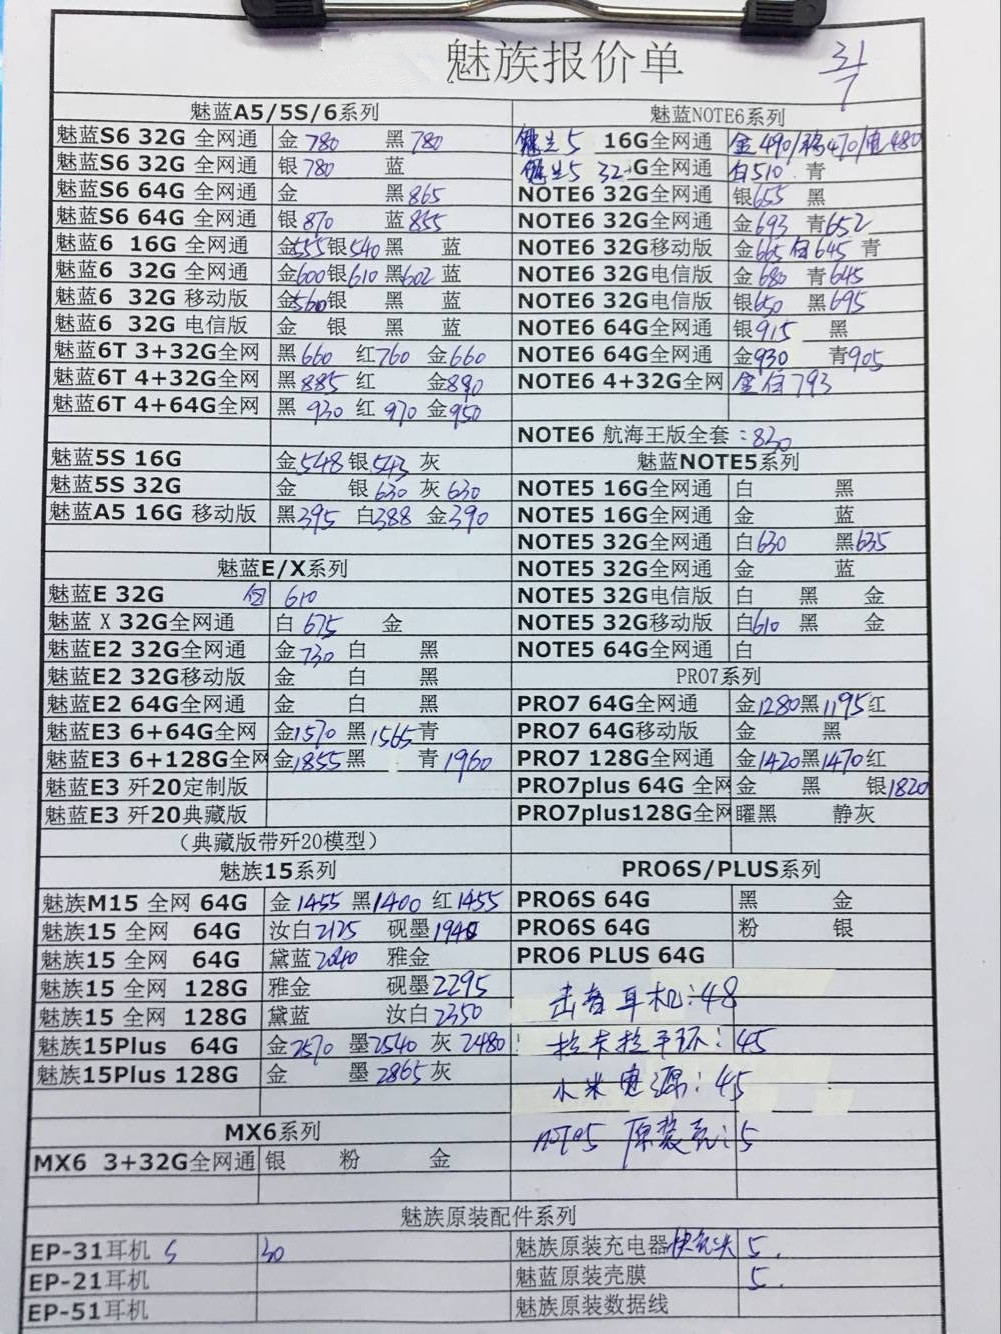 魅族报价单
31/7
魅蓝A5/5S/6系列
魅蓝S6 32G 全网通 金 780 黑 780
魅蓝S6 32G 全网通 银 780 蓝
魅蓝S6 64G 全网通 金 黑 865
魅蓝S6 64G 全网通 银 870 蓝 855
魅蓝6 16G 全网通 金555 银540 黑 蓝
魅蓝6 32G 全网通 金600 银610 黑602 蓝
魅蓝6 32G 移动版 金560 银 黑 蓝
魅蓝6 32G 电信版 金 银 黑 蓝
魅蓝6T 3+32G全网 黑 660 红760 金660
魅蓝6T 4+32G全网 黑 885 红 金890
魅蓝6T 4+64G全网 黑 930 红 970 金950
魅蓝5S 16G 金548 银543 灰
魅蓝5S 32G 金 银 630 灰 630
魅蓝A5 16G 移动版 黑395 白388 金390
魅蓝E/X系列
魅蓝E 32G 白 610
魅蓝 X 32G全网通 白 675 金
魅蓝E2 32G全网通 金 730 白 黑
魅蓝E2 32G移动版 金 白 黑
魅蓝E2 64G全网通 金 白 黑
魅蓝E3 6+64G全网 金1570 黑1565 青
魅蓝E3 6+128G全网 金1855 黑 青 1960
魅蓝E3 歼20定制版
魅蓝E3 歼20典藏版
(典藏版带歼20模型)
魅族15系列
魅族M15 全网 64G 金 1455 黑1400 红1455
魅族15 全网 64G 汝白2125 砚墨1940
魅族15 全网 64G 黛蓝2040 雅金
魅族15 全网 128G 雅金 砚墨2295
魅族15 全网 128G 黛蓝 汝白2350
魅族15Plus 64G 金2570 墨2540 灰 2480
魅族15Plus 128G 金 墨2865 灰
MX6系列
MX6 3+32G全网通 银 粉 金
魅蓝NOTE6系列
魅蓝5 16G全网通 金490/粉470/白480
魅蓝5 32G全网通 白510 青
NOTE6 32G全网通 银655 黑
NOTE6 32G全网通 金693 青652
NOTE6 32G移动版 金665 白645 青
NOTE6 32G电信版 金 680 青645
NOTE6 32G电信版 银650 黑695
NOTE6 64G全网通 银915 黑
NOTE6 64G全网通 金930 青905
NOTE6 4+32G全网 金白793
NOTE6 航海王版全套:830
魅蓝NOTE5系列
NOTE5 16G全网通 白 黑
NOTE5 16G全网通 金 蓝
NOTE5 32G全网通 白630 黑635
NOTE5 32G全网通 金 蓝
NOTE5 32G电信版 白 黑 金
NOTE5 32G移动版 白610 黑 金
NOTE5 64G全网通 白
PRO7系列
PRO7 64G全网通 金1280黑1195红
PRO7 64G移动版 金 黑
PRO7 128G全网通 金1420黑1470红
PRO7plus 64G 全网 金 黑 银1820
PRO7plus128G全网 曜黑 静灰
PRO6S/PLUS系列
PRO6S 64G 黑 金
PRO6S 64G 粉 银
PRO6 PLUS 64G
击音耳机:48
拉卡拉手环:45
小米电源:45
NOTE5 原装壳:5
魅族原装配件系列
EP-31耳机 S 30
EP-21耳机
EP-51耳机
魅族原装充电器快充头 5.
魅蓝原装壳膜 5.
魅族原装数据线